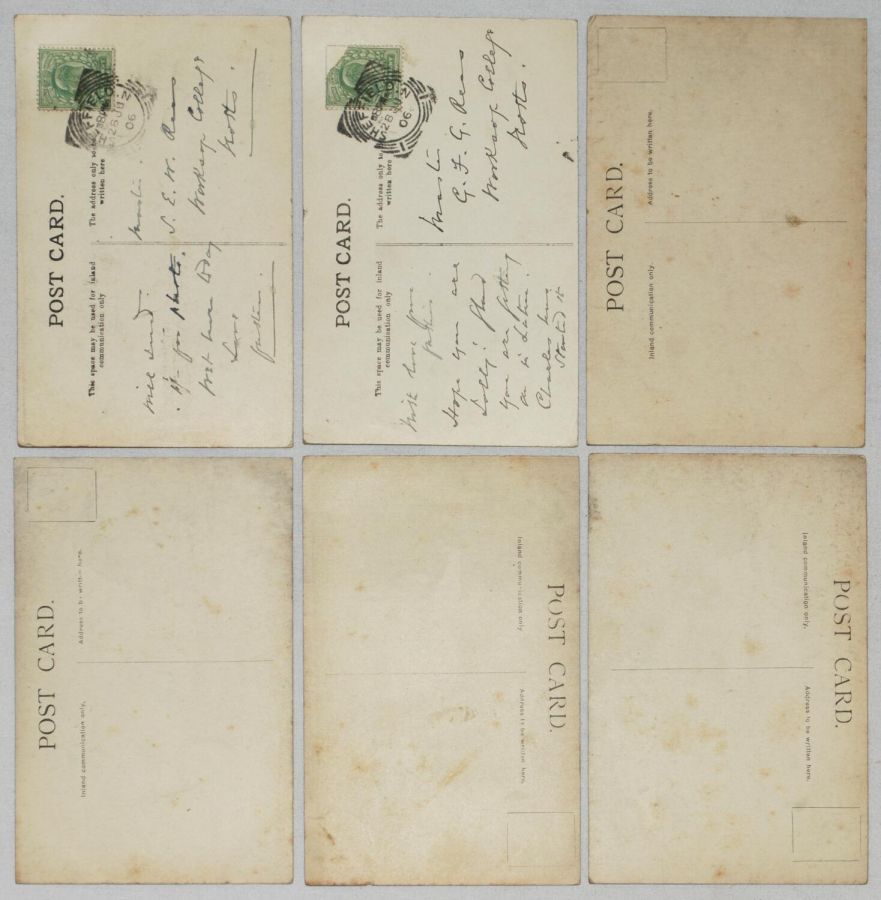 POST CARD.
The address only to be
written here
This space may be used for inland
communication only
SHEFFIELD
28 JU
06
Master.
S. E. W. Rees
Worksop College
Notts.
Will send
for photo.
Wet here today
Love
POST CARD.
The address only to
written here
This space may be used for inland
communication only
SHEFFIELD
28 JU
06
Master
G. F. G. Rees
Worksop College
Notts.
With love from
Hope you are
Jolly! Glad
you are getting
on in Latin.
Charles has
started it
POST CARD.
Address to be written here.
Inland communication only.
POST CARD.
Address to be written here.
Inland communication only.
POST CARD.
Inland communication only
Address to be written here.
POST CARD.
Inland communication only.
Address to be written here.